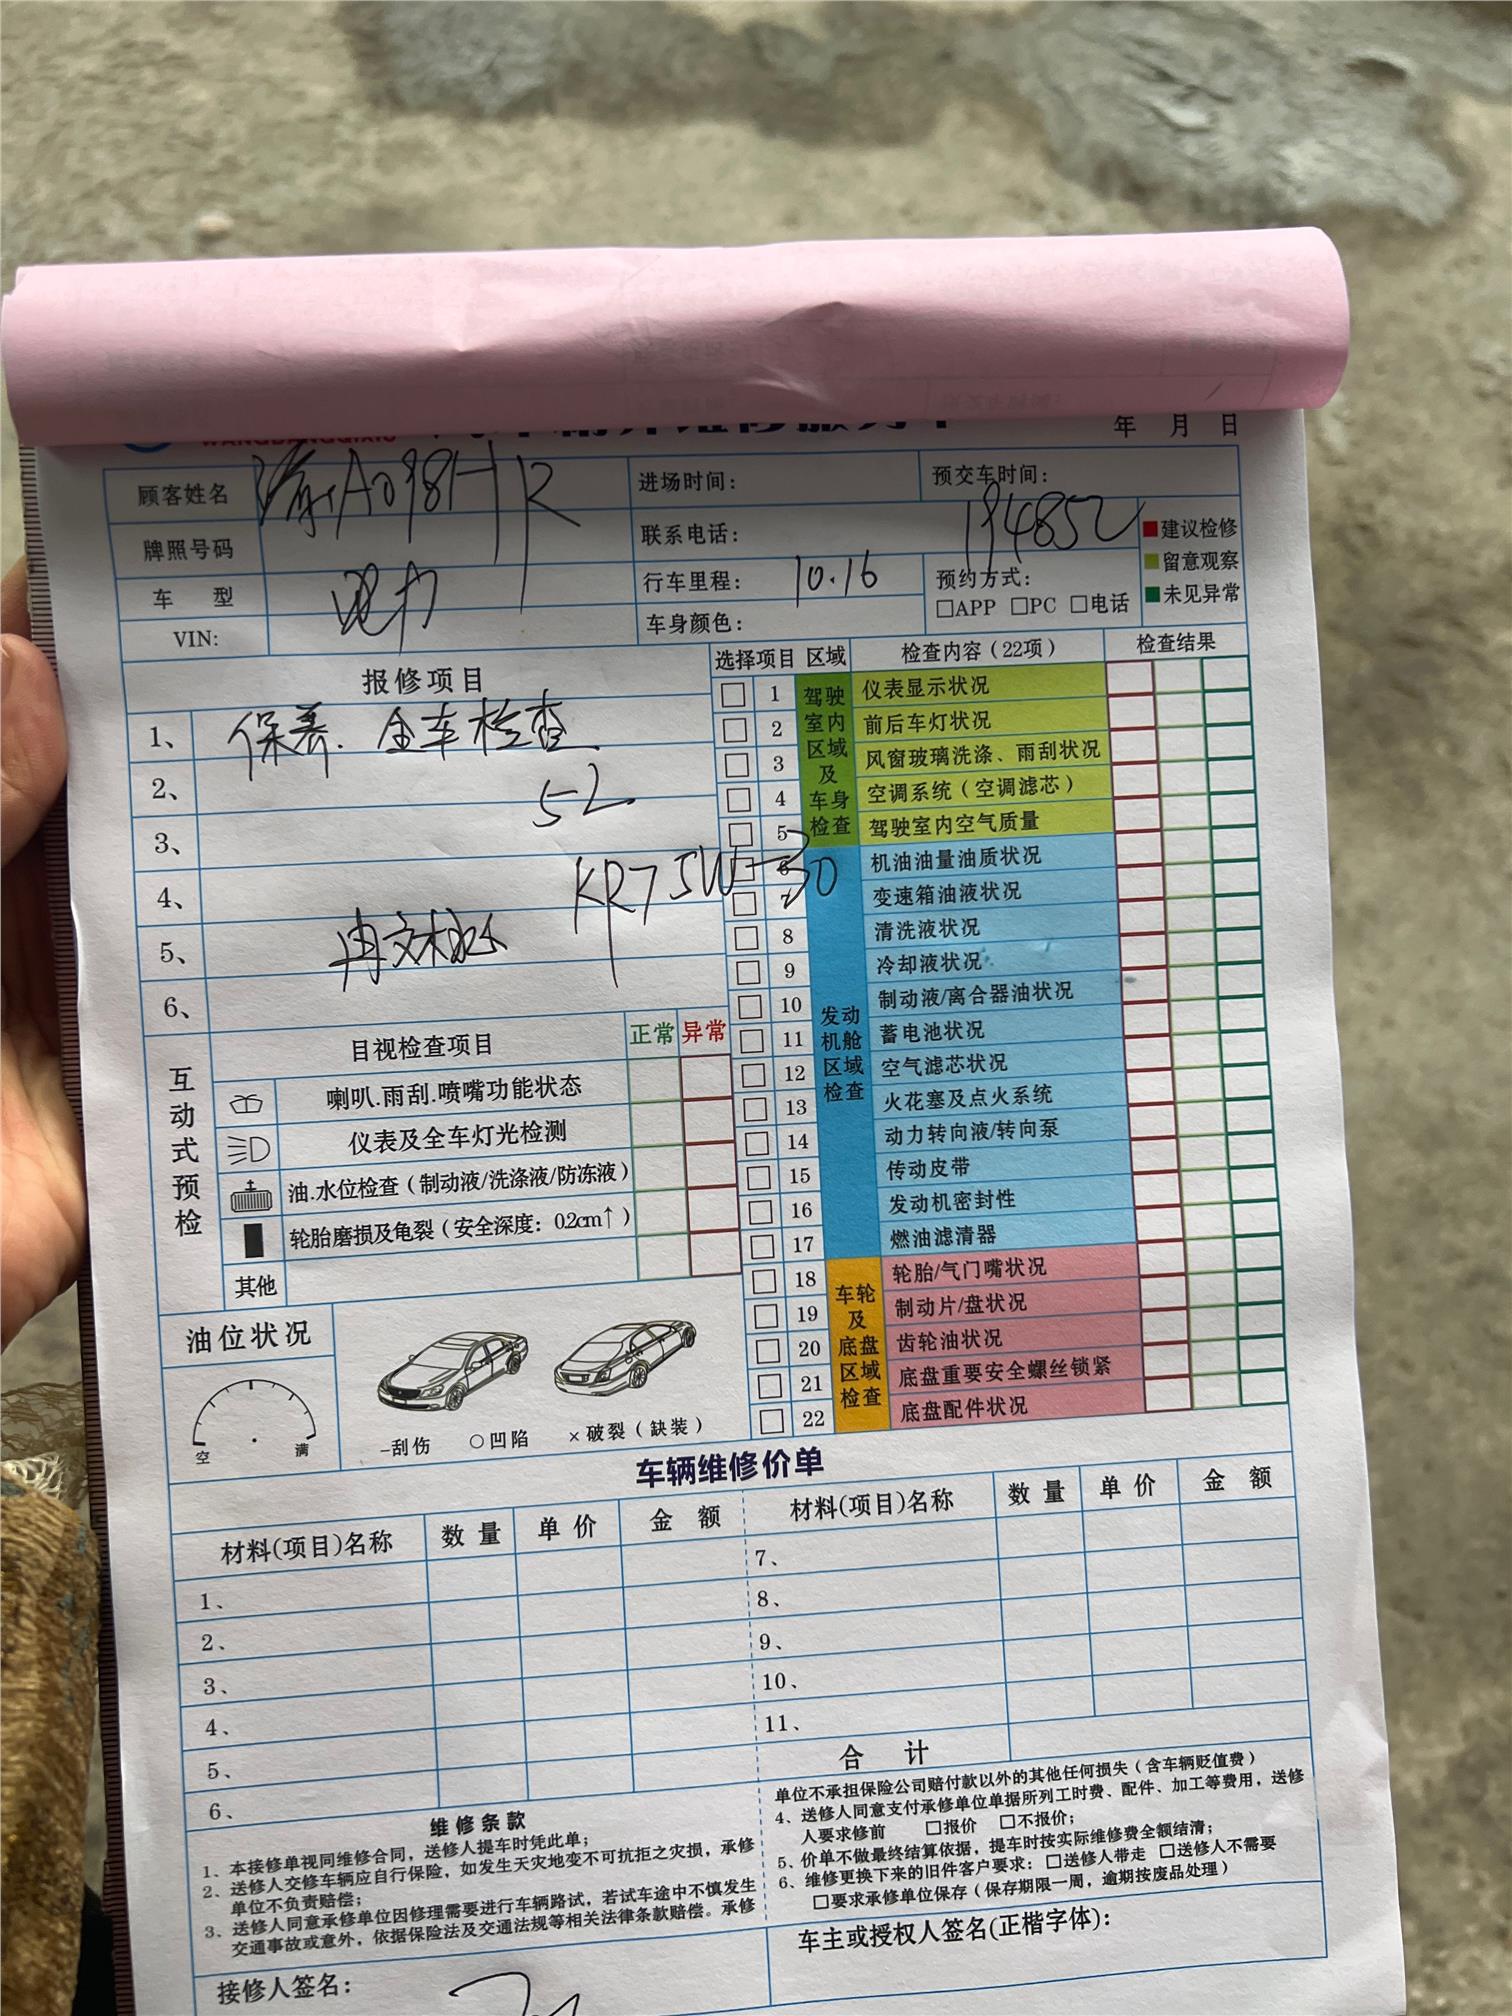 WANGBANGQIXIU
年 月 日
顾客姓名 渝A098HR 进场时间： 预交车时间：
牌照号码 联系电话： 194852
车 型 电力 行车里程： 10.16 预约方式：
□APP □PC □电话
VIN: 车身颜色：
■建议检修
■留意观察
■未见异常
报修项目
1、 保养. 全车检查
2、 5L
3、
4、 KR7 5W-30
5、
6、
选择项目 区域 检查内容（22项） 检查结果
驾驶室内区域及车身检查
□ 1 仪表显示状况
□ 2 前后车灯状况
□ 3 风窗玻璃洗涤、雨刮状况
□ 4 空调系统（空调滤芯）
□ 5 驾驶室内空气质量
发动机舱区域检查
□ 6 机油油量油质状况
□ 7 变速箱油液状况
□ 8 清洗液状况
□ 9 冷却液状况
□ 10 制动液/离合器油状况
□ 11 蓄电池状况
□ 12 空气滤芯状况
□ 13 火花塞及点火系统
□ 14 动力转向液/转向泵
□ 15 传动皮带
□ 16 发动机密封性
□ 17 燃油滤清器
车轮及底盘区域检查
□ 18 轮胎/气门嘴状况
□ 19 制动片/盘状况
□ 20 齿轮油状况
□ 21 底盘重要安全螺丝锁紧
□ 22 底盘配件状况
互动式预检
目视检查项目 正常 异常
喇叭.雨刮.喷嘴功能状态
仪表及全车灯光检测
油.水位检查（制动液/洗涤液/防冻液）
轮胎磨损及龟裂（安全深度：0.2cm↑）
其他
油位状况
空 满
-刮伤 ○凹陷 ×破裂（缺装）
车辆维修价单
材料(项目)名称 数量 单价 金额 材料(项目)名称 数量 单价 金额
1、 7、
2、 8、
3、 9、
4、 10、
5、 11、
6、 合 计
维修条款
1、本接修单视同维修合同，送修人提车时凭此单；
2、送修人交修车辆应自行保险，如发生天灾地变不可抗拒之灾损，承修
单位不负责赔偿；
3、送修人同意承修单位因修理需要进行车辆路试，若试车途中不慎发生
交通事故或意外，依据保险法及交通法规等相关法律条款赔偿。承修
单位不承担保险公司赔付款以外的其他任何损失（含车辆贬值费）
4、送修人同意支付承修单位单据所列工时费、配件、加工等费用，送修
人要求修前 □报价 □不报价；
5、价单不做最终结算依据，提车时按实际维修费全额结清；
6、维修更换下来的旧件客户要求：□送修人带走 □送修人不需要
□要求承修单位保存（保存期限一周，逾期按废品处理）
接修人签名： 车主或授权人签名(正楷字体)：